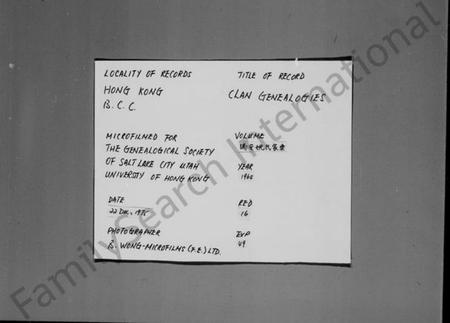 LOCALITY OF RECORDS
HONG KONG
B. C. C.
TITLE OF RECORD
CLAN GENEALOGIES
MICROFILMED FOR
THE GENEALOGICAL SOCIETY
OF SALT LAKE CITY UTAH
UNIVERSITY OF HONG KONG
VOLUME
YEAR
1960
DATE
22 DEC, 1975
RED
16
PHOTOGRAPHER
B. WONG-MICROFILMS (F.E.) LTD.
EXP
49
FamilySearch International